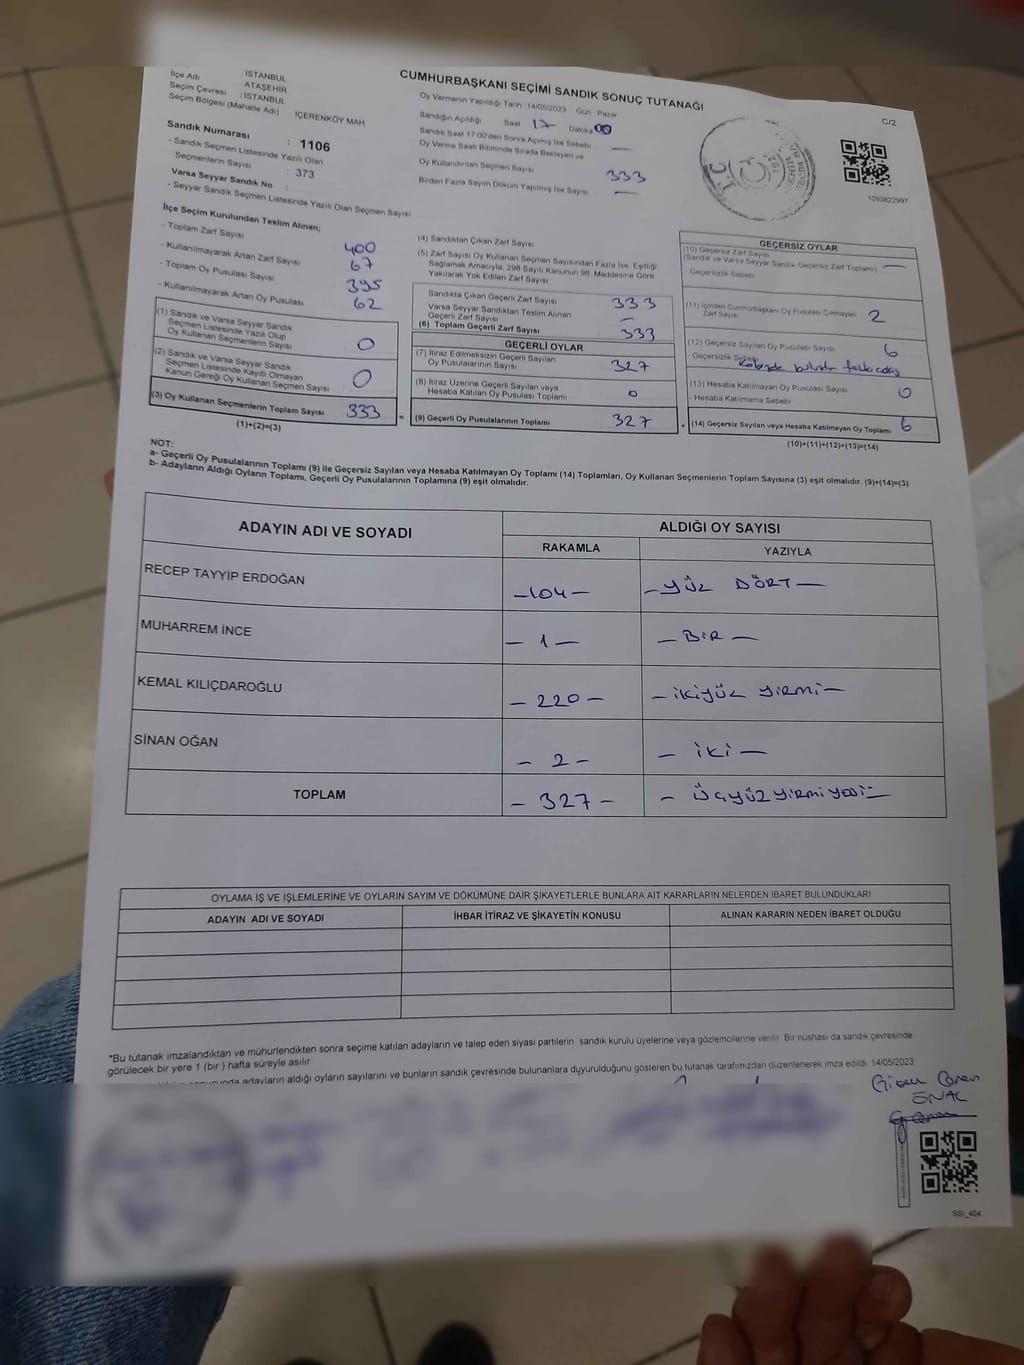 İSTANBUL
İlçe Adı
ATAŞEHİR
Seçim Çevresi : İSTANBUL
Seçim Bölgesi (Mahalle Adı) İÇERENKÖY MAH
Sandık Numarası : 1106
- Sandık Seçmen Listesinde Yazılı Olan
Seçmenlerin Sayısı : 373
Varsa Seyyar Sandık No :
- Seyyar Sandık Seçmen Listesinde Yazılı Olan Seçmen Sayısı
CUMHURBAŞKANI SEÇİMİ SANDIK SONUÇ TUTANAĞI
Oy Vermenin Yapıldığı Tarih :14/05/2023 Gün : Pazar
Sandığın Açıldığı Saat 17 Dakika 00
Sandık Saat 17:00'den Sonra Açılmış İse Sebebi —
Oy Verme Saati Bitiminde Sırada Bekleyen ve
Oy Kullandırılan Seçmen Sayısı 333
Birden Fazla Sayım Döküm Yapılmış İse Sayısı —
C/2
1093822997
İlçe Seçim Kurulundan Teslim Alınan;
- Toplam Zarf Sayısı 400
- Kullanılmayarak Artan Zarf Sayısı 67
- Toplam Oy Pusulası Sayısı 395
- Kullanılmayarak Artan Oy Pusulası 62
(1) Sandık ve Varsa Seyyar Sandık
Seçmen Listesinde Yazılı Olup
Oy Kullanan Seçmenlerin Sayısı 0
(2) Sandık ve Varsa Seyyar Sandık
Seçmen Listesinde Kayıtlı Olmayan
Kanun Gereği Oy Kullanan Seçmen Sayısı 0
(3) Oy Kullanan Seçmenlerin Toplam Sayısı 333
(1)+(2)=(3)
(4) Sandıktan Çıkan Zarf Sayısı
(5) Zarf Sayısı Oy Kullanan Seçmen Sayısından Fazla İse, Eşitliği
Sağlamak Amacıyla, 298 Sayılı Kanunun 98. Maddesine Göre
Yakılarak Yok Edilen Zarf Sayısı
Sandıkta Çıkan Geçerli Zarf Sayısı 333
Varsa Seyyar Sandıktan Teslim Alınan
Geçerli Zarf Sayısı —
(6) Toplam Geçerli Zarf Sayısı 333
GEÇERLİ OYLAR
(7) İtiraz Edilmeksizin Geçerli Sayılan
Oy Pusulalarının Sayısı 327
(8) İtiraz Üzerine Geçerli Sayılan veya
Hesaba Katılan Oy Pusulası Toplamı 0
(9) Geçerli Oy Pusulalarının Toplamı 327
GEÇERSİZ OYLAR
(10) Geçersiz Zarf Sayısı
(Sandık ve Varsa Seyyar Sandık Geçersiz Zarf Toplamı) —
Geçersizlik Sebebi
(11) İçinden Cumhurbaşkanı Oy Pusulası Çıkmayan
Zarf Sayısı 2
(12) Geçersiz Sayılan Oy Pusulası Sayısı 6
- Geçersizlik Sebebi
(13) Hesaba Katılmayan Oy Pusulası Sayısı 0
- Hesaba Katılmama Sebebi
(14) Geçersiz Sayılan veya Hesaba Katılmayan Oy Toplamı 6
(10)+(11)+(12)+(13)=(14)
NOT:
a- Geçerli Oy Pusulalarının Toplamı (9) ile Geçersiz Sayılan veya Hesaba Katılmayan Oy Toplamı (14) Toplamları, Oy Kullanan Seçmenlerin Toplam Sayısına (3) eşit olmalıdır. (9)+(14)=(3)
b- Adayların Aldığı Oyların Toplamı, Geçerli Oy Pusulalarının Toplamına (9) eşit olmalıdır.
ADAYIN ADI VE SOYADI ALDIĞI OY SAYISI
RAKAMLA YAZIYLA
RECEP TAYYİP ERDOĞAN -104- -YÜZ DÖRT-
MUHARREM İNCE - 1 - - BİR -
KEMAL KILIÇDAROĞLU - 220 - - İKİYÜZ YİRMİ -
SİNAN OĞAN - 2 - - İKİ -
TOPLAM - 327 - - ÜÇYÜZYİRMİYEDİ -
OYLAMA İŞ VE İŞLEMLERİNE VE OYLARIN SAYIM VE DÖKÜMÜNE DAİR ŞİKAYETLERLE BUNLARA AİT KARARLARIN NELERDEN İBARET BULUNDUKLARI
ADAYIN ADI VE SOYADI İHBAR İTİRAZ VE ŞİKAYETİN KONUSU ALINAN KARARIN NEDEN İBARET OLDUĞU
*Bu tutanak imzalandıktan ve mühürlendikten sonra seçime katılan adayların ve talep eden siyasi partilerin sandık kurulu üyelerine veya gözlemcilerine verilir. Bir nüshası da sandık çevresinde
görülecek bir yere 1 (bir ) hafta süreyle asılır.
adayların aldığı oyların sayılarını ve bunların sandık çevresinde bulunanlara duyurulduğunu gösteren bu tutanak tarafımızdan düzenlenerek imza edildi. 14/05/2023
SSİ_404